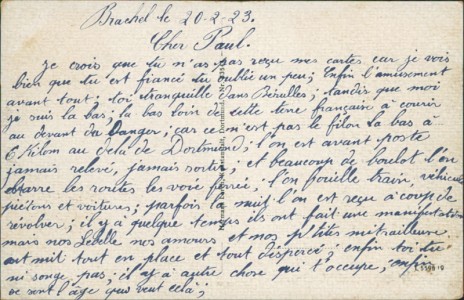 Brachel le 20-2-23.
Cher Paul.
Je crois que tu n'as pas reçu mes cartes car je vois
bien que tu est fiancé tu oublié un peu; Enfin l'amusement
avant tout; toi tranquille dans Bérulles; tandis que moi
je suis la bas; la bas loin de cette tère française à courir
au devant du Danger; car ce n'est pas le filon la bas à
6 Kilom au delu de Dortmund, l'on est avant poste
jamais relevé, jamais sortir, et beaucoup de boulot l'on
barre les routes les voie ferrée, l'on fouille train, véhicules
piétons et voitures; parfois la nuit l'on est reçu à coup de
révolver; il y a quelque temps ils ont fait une manifestation
mais nos Lebelle nos amours, et nos p'tites métrailleuse
ont mit tout en place et tout dispercé; enfin toi tu
ni songe pas; il y a autre chose qui t'occupe, enfin
se sont l'âge qui veut celà;